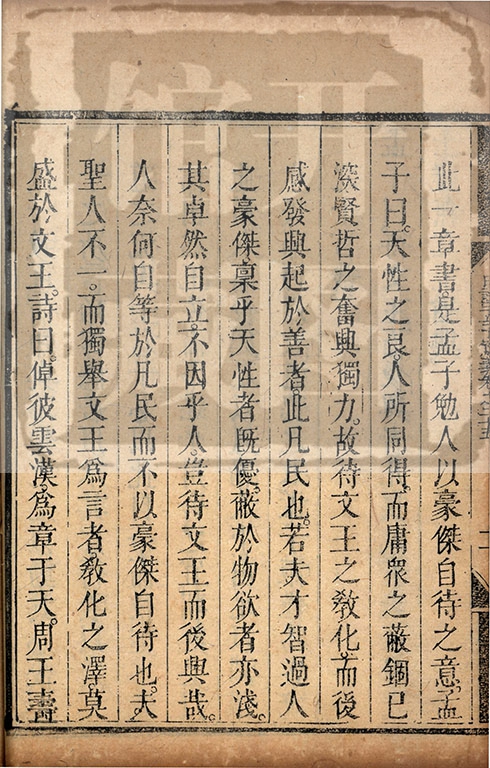 此一章書是孟子勉人以豪傑自待之意。孟
子曰。天性之良。人所同得。而庸衆之蔽錮已
深。賢哲之奮興獨力。故待文王之敎化。而後
感發興起於善者。此凡民也。若夫才智過人
之豪傑。稟乎天性者旣優。蔽於物欲者亦淺。
其卓然自立。不因乎人。豈待文王而後興哉。
人奈何自等於凡民而不以豪傑自待也。夫
聖人不一。而獨舉文王爲言者。敎化之澤莫
盛於文王。詩曰。倬彼雲漢。爲章于天。周王壽